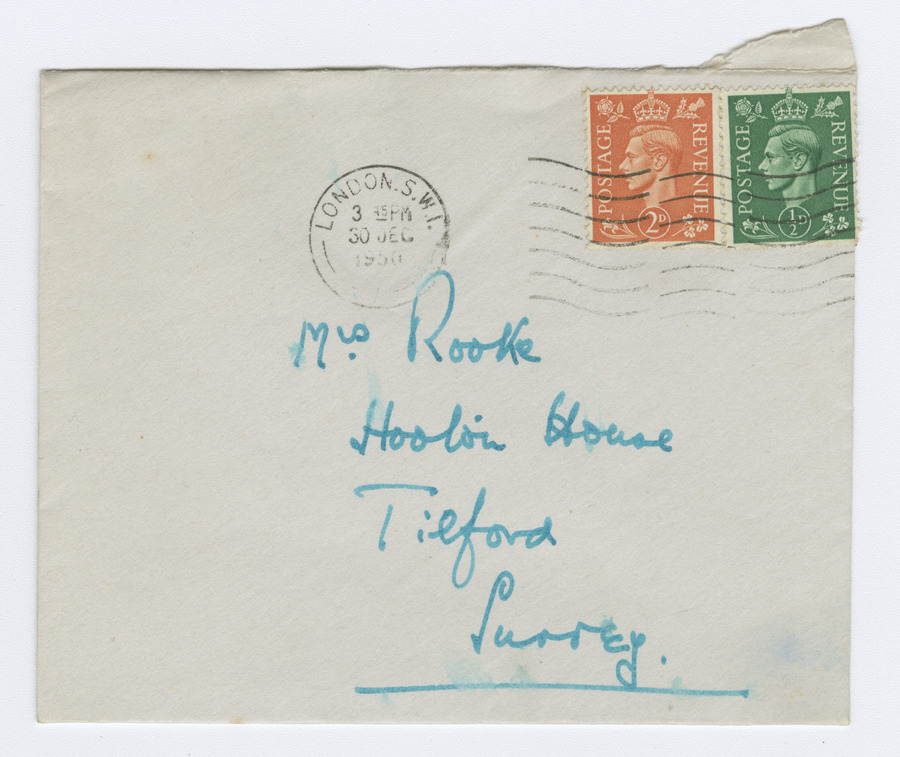 POSTAGE REVENUE 2D
POSTAGE REVENUE ½D
LONDON.S.W.1.
3 45 PM
30 DEC
1950
Mrs Rooke
House
Tilford
Surrey.